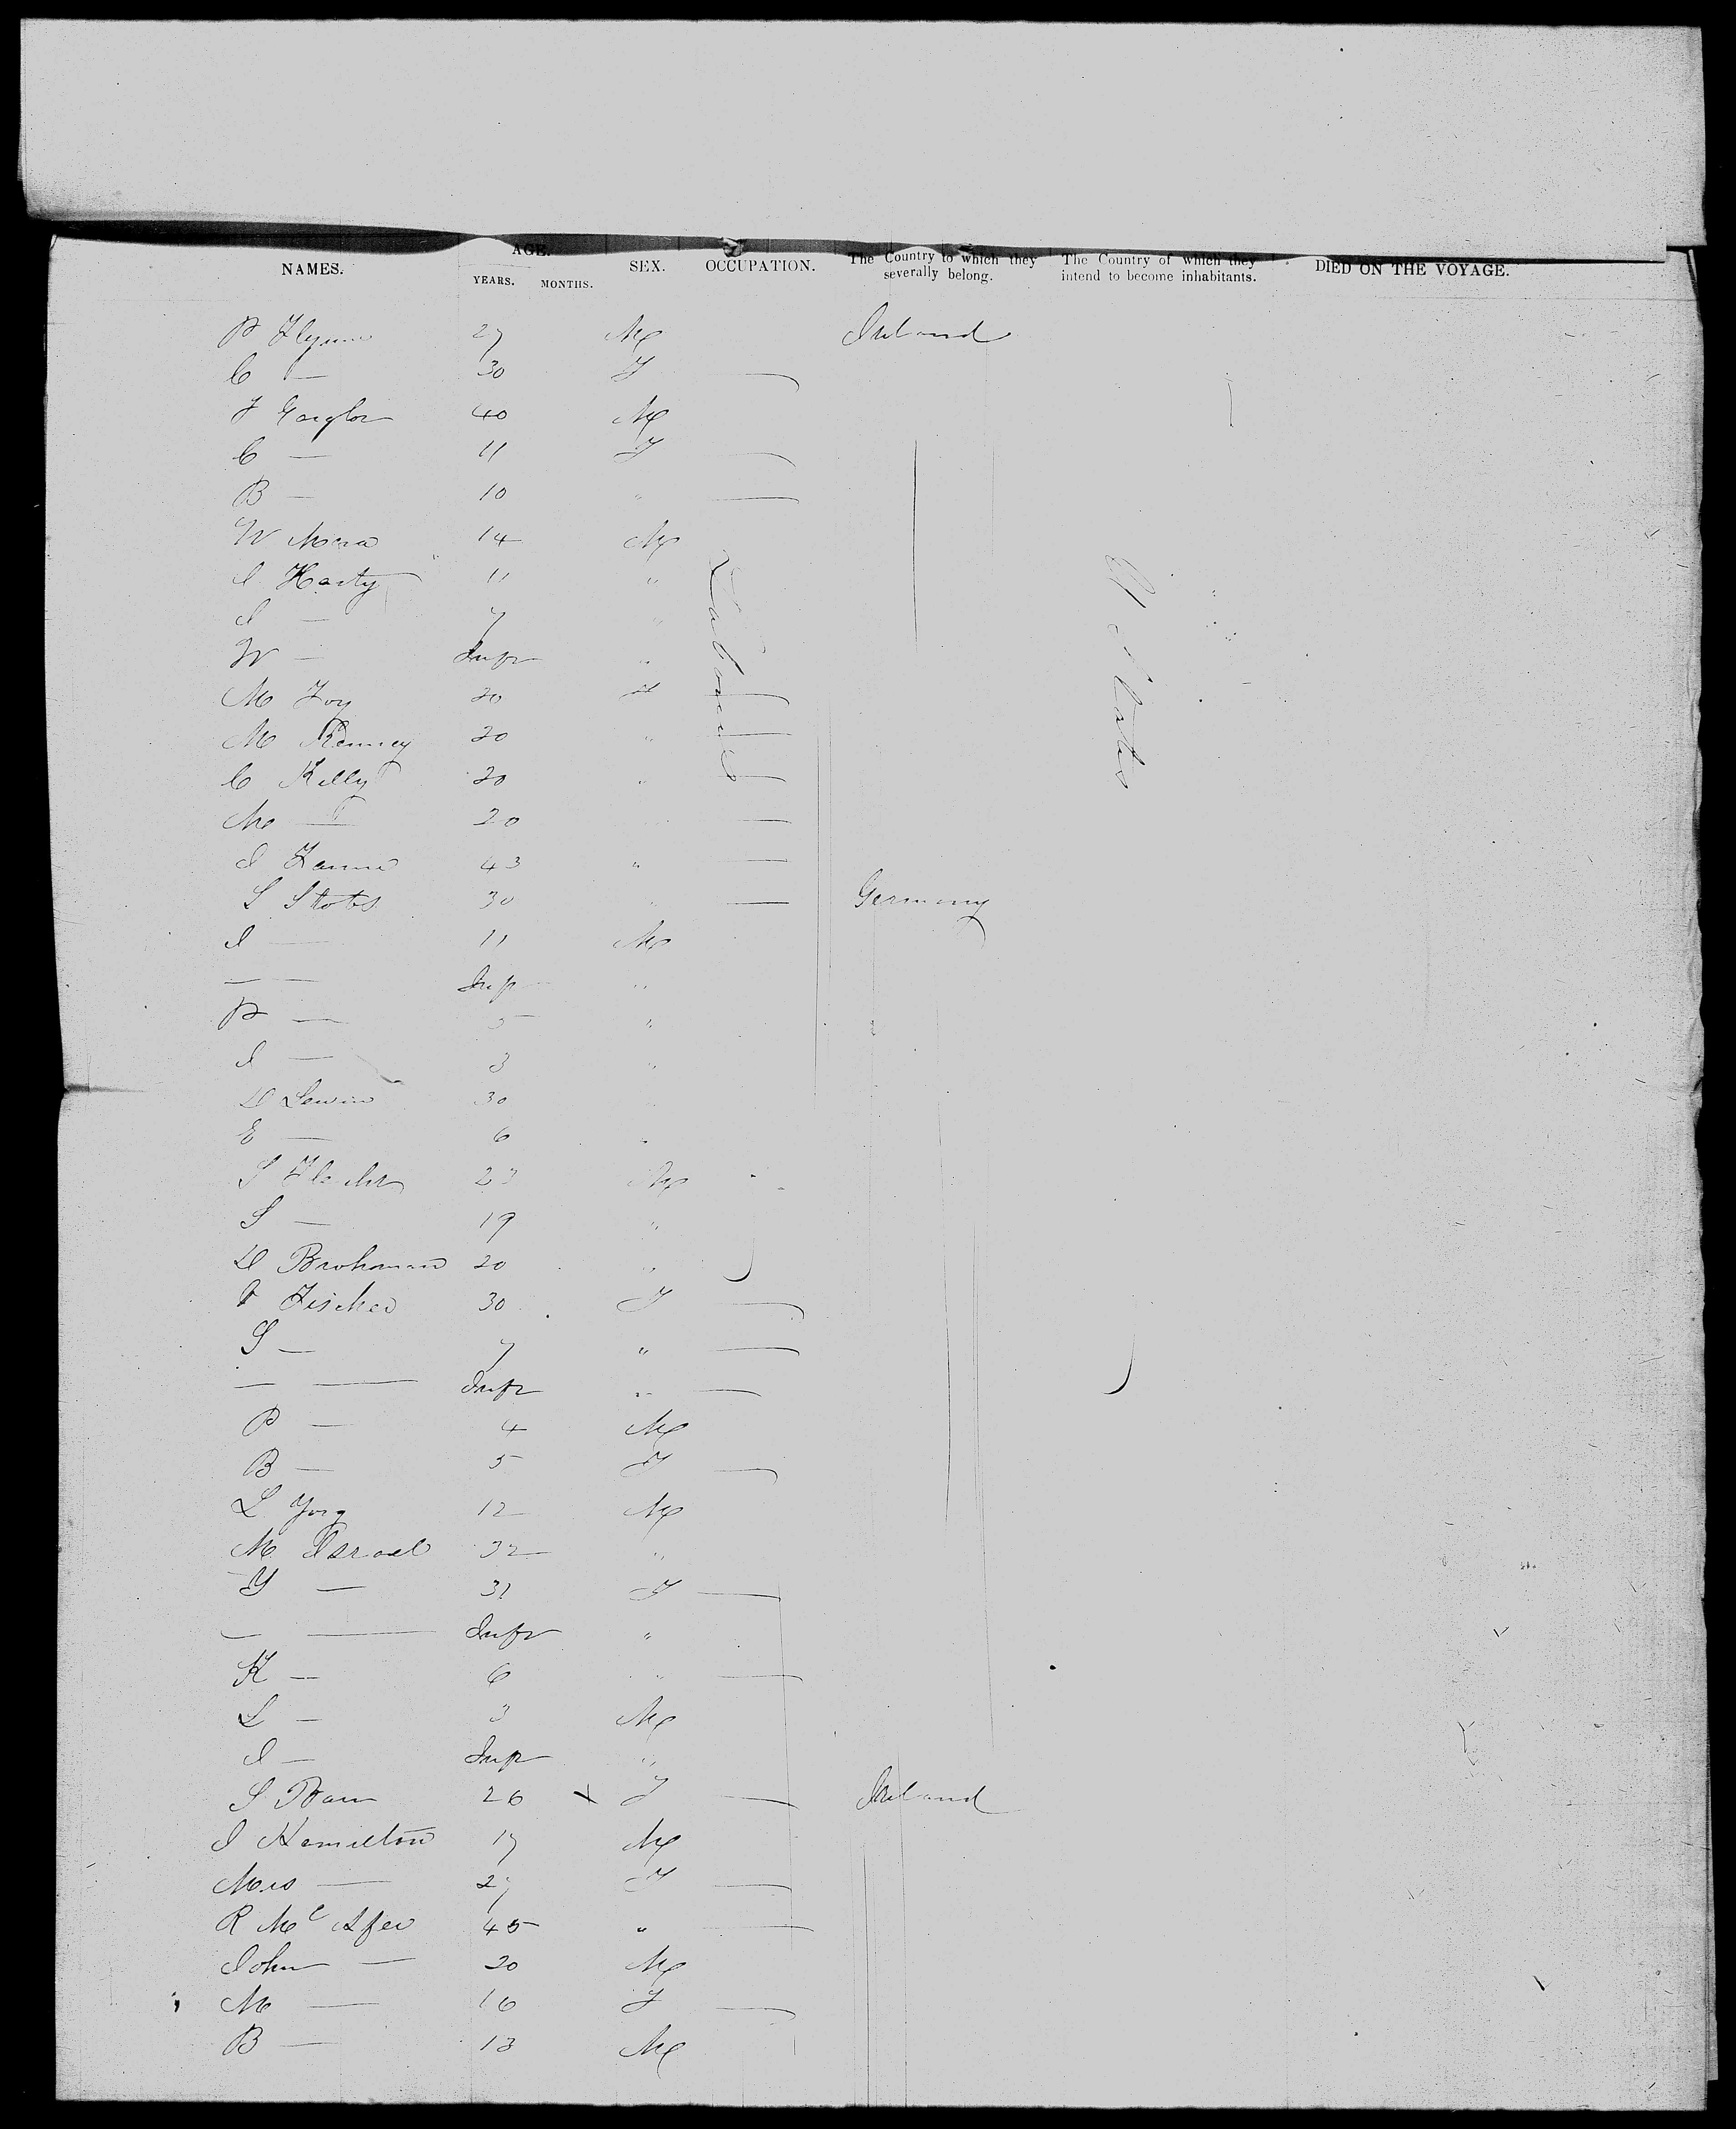 NAMES. AGE. YEARS. MONTHS. SEX. OCCUPATION. The Country to which they severally belong. The Country of which they intend to become inhabitants. DIED ON THE VOYAGE.
P Flynn 27 M Ireland
C — 30 F —
J 40 M
C — 11 F —
B — 10 " —
W Mara 14 M
J Harty 11 "
J — 7 "
W — Infr "
M Foy 20 F —
M Kenney 20 " —
C Kelly 20 " —
M — 20 —
J 43 " —
S Stobs 30 " — Germany
J — 11 M
— — Infr "
P — 5 "
J — 3 "
D Lewin 30
E — 6 "
S 23 M
S — 19 "
D Brohmann 20 "
Fischer 30 F —
S — 7 " —
— — Infr " —
P — 4 M
B — 5 F —
L Yorg 12 M
M Israel 32 "
Y — 31 F —
— — Infr "
K — 6 " —
L — 3 M
J — Infr "
S 26 F — Ireland
J Hamilton 17 M
Mrs — 27 F —
R McAfee 45 " —
John — 20 M
M — 16 F —
B — 13 M
Labourers
U States